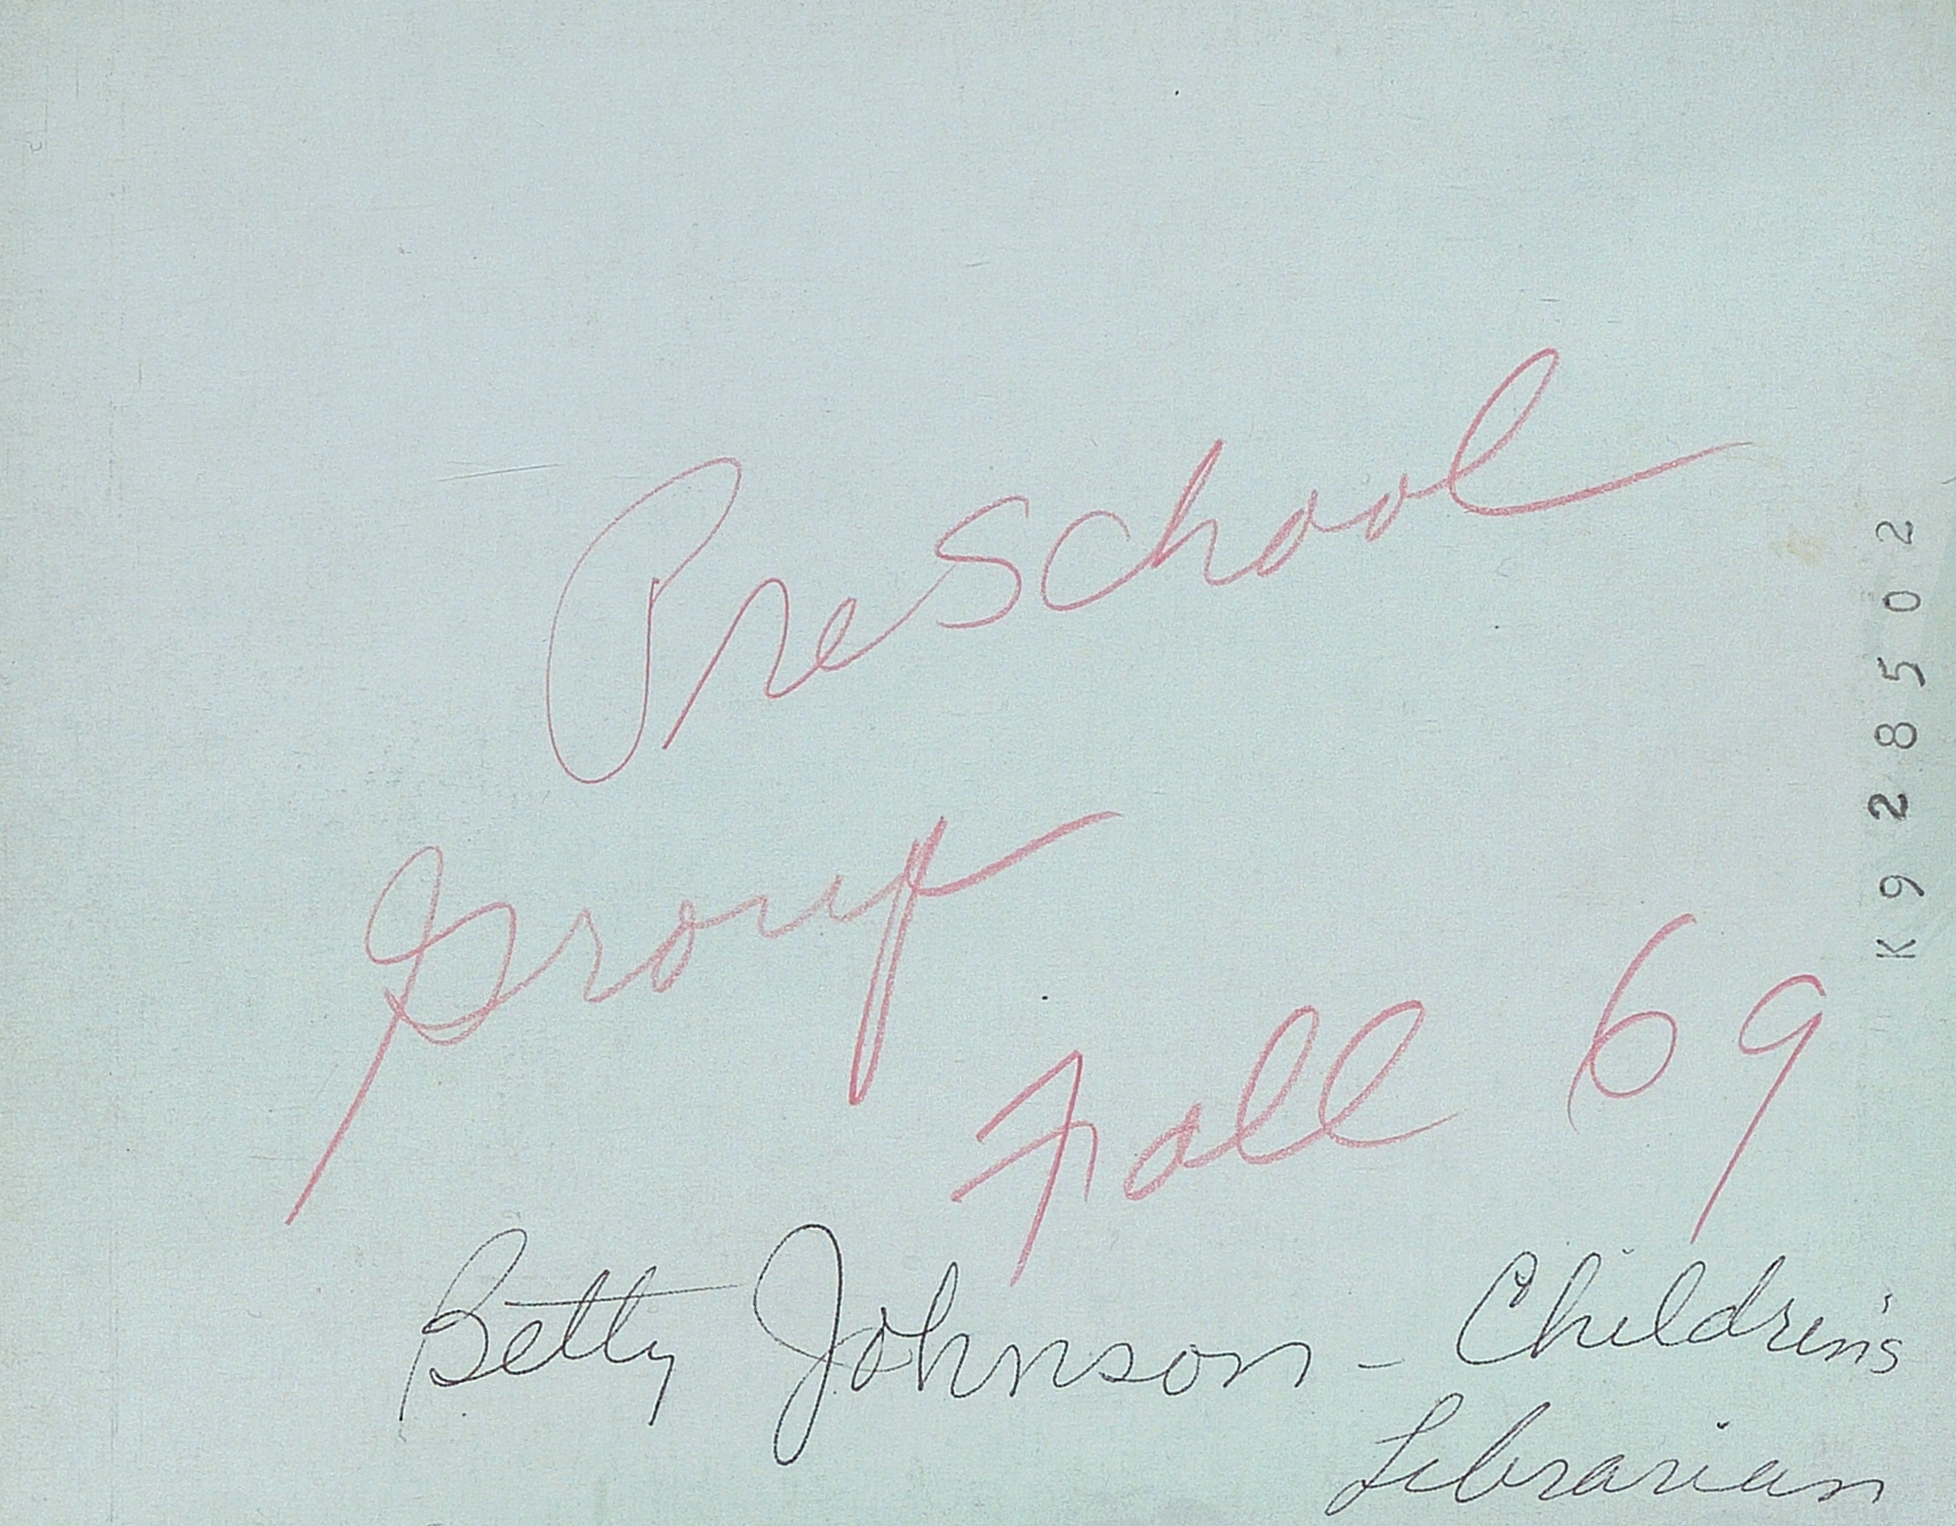 PreSchool
Group
Fall 69
Betty Johnson - Children's
Librarian
K928502